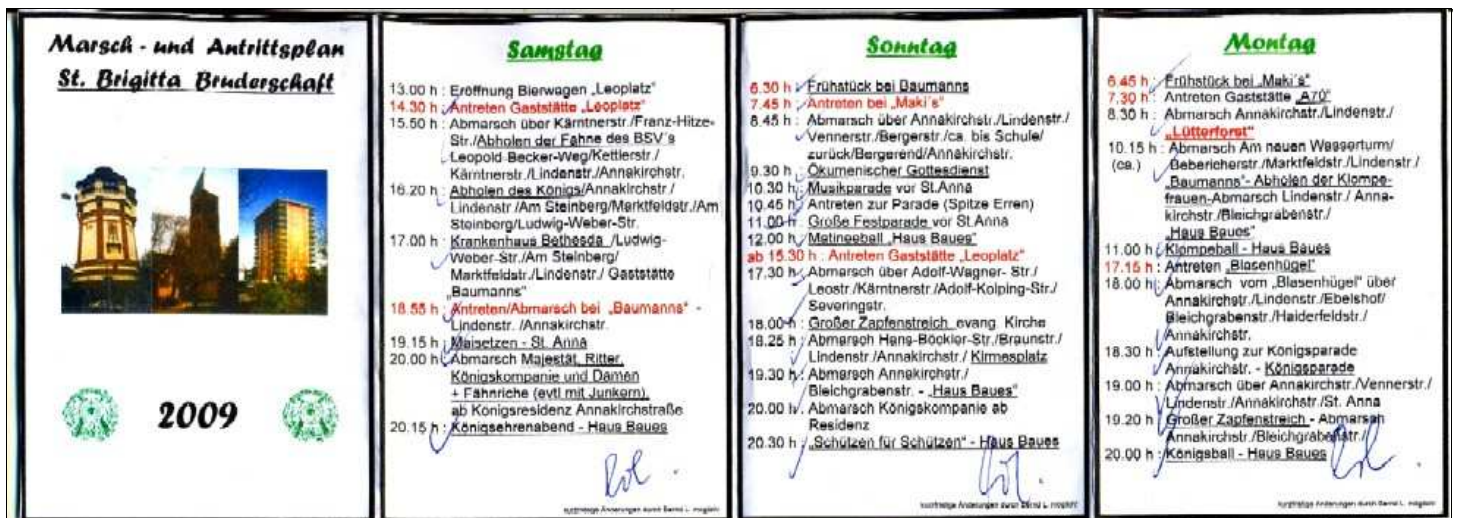 Marsch - und Antrittsplan
St. Brigitta Bruderschaft
2009
Samstag
13.00 h : Eröffnung Bierwagen „Leoplatz“
14.30 h : Antreten Gaststätte „Leoplatz“
15.50 h : Abmarsch über Kärntnerstr./Franz-Hitze-
Str./Abholen der Fahne des BSV´s
Leopold-Becker-Weg/Kettlerstr./
Kärntnerstr./Lindenstr./Annakirchstr.
16.20 h : Abholen des Königs/Annakirchstr./
Lindenstr./Am Steinberg/Marktfeldstr./Am
Steinberg/Ludwig-Weber-Str.
17.00 h : Krankenhaus Bethesda /Ludwig-
Weber-Str./Am Steinberg/
Marktfeldstr./Lindenstr./ Gaststätte
„Baumanns“
18.55 h : Antreten/Abmarsch bei „Baumanns“ -
Lindenstr. /Annakirchstr.
19.15 h : Maisetzen - St. Anna
20.00 h : Abmarsch Majestät, Ritter,
Königskompanie und Damen
+ Fähnriche (evtl mit Junkern),
ab Königsresidenz Annakirchstraße
20.15 h : Königsehrenabend - Haus Baues
kurzfristige Änderungen durch Bernd L. möglich!
Sonntag
6.30 h : Frühstück bei Baumanns
7.45 h : Antreten bei „Maki´s“
8.45 h : Abmarsch über Annakirchstr./Lindenstr./
Vennerstr./Bergerstr./ca. bis Schule/
zurück/Bergerend/Annakirchstr.
9.30 h : Ökumenischer Gottesdienst
10.30 h : Musikparade vor St.Anna
10.45 h : Antreten zur Parade (Spitze Erren)
11.00 h : Große Festparade vor St.Anna
12.00 h : Matineeball „Haus Baues“
ab 15.30 h : Antreten Gaststätte „Leoplatz“
17.30 h : Abmarsch über Adolf-Wagner- Str./
Leostr./Kärntnerstr./Adolf-Kolping-Str./
Severingstr.
18.00 h : Großer Zapfenstreich evang. Kirche
18.25 h : Abmarsch Hans-Böckler-Str./Braunstr./
Lindenstr./Annakirchstr./ Kirmesplatz
19.30 h : Abmarsch Annakirchstr./
Bleichgrabenstr. - „Haus Baues“
20.00 h : Abmarsch Königskompanie ab
Residenz
20.30 h : „Schützen für Schützen“ - Haus Baues
kurzfristige Änderungen durch Bernd L. möglich!
Montag
6.45 h : Frühstück bei „Maki´s“
7.30 h : Antreten Gaststätte „A70“
8.30 h : Abmarsch Annakirchstr./Lindenstr./
„Lütterforst“
10.15 h : Abmarsch Am neuen Wasserturm/
(ca.) Bebericherstr./Marktfeldstr./Lindenstr./
„Baumanns“- Abholen der Klompe-
frauen-Abmarsch Lindenstr./ Anna-
kirchstr./Bleichgrabenstr./
„Haus Baues“
11.00 h : Klompeball - Haus Baues
17.15 h : Antreten „Blasenhügel“
18.00 h : Abmarsch vom „Blasenhügel“ über
Annakirchstr./Lindenstr./Ebelshof/
Bleichgrabenstr./Haiderfeldstr./
Annakirchstr.
18.30 h : Aufstellung zur Königsparade
Annakirchstr. - Königsparade
19.00 h : Abmarsch über Annakirchstr./Vennerstr./
Lindenstr./Annakirchstr./St. Anna
19.20 h : Großer Zapfenstreich - Abmarsch
Annakirchstr./Bleichgrabenstr./
20.00 h : Königsball - Haus Baues
kurzfristige Änderungen durch Bernd L. möglich!